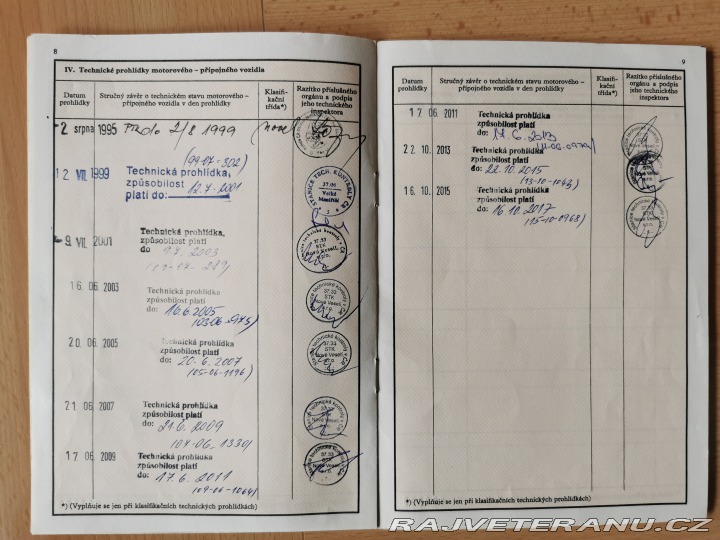 8
IV. Technické prohlídky motorového – přípojného vozidla
Datum prohlídky
Stručný závěr o technickém stavu motorového – přípojného vozidla v den prohlídky
Klasifikační třída*)
Razítko příslušného orgánu a podpis jeho technického inspektora
2 srpna 1995 PRdo 2/8 1999
(99-07-302)
12 VII. 1999 Technická prohlídka,
způsobilost
platí do: 12.7.2001
STANICE TECH. KONTROLY ČR
37.06
Velké
Meziříčí
9. VII. 2001 Technická prohlídka,
způsobilost platí
do 9.7. 2003
37.33
STK
Nové Veselí
16 06 2003 Technická prohlídka
způsobilost platí
do: 16.6.2005
(03-06-975)
37.33
STK
Nové Veselí
20 06 2005 Technická prohlídka
způsobilost platí
do: 20.6.2007
(05-06-1196)
37.33
STK
Nové Veselí
21 06 2007 Technická prohlídka
způsobilost platí
do: 21.6.2009
(07-06-1330)
Nové Veselí
17 06 2009 Technická prohlídka
způsobilost platí
do: 17.6.2011
(09-06-1064)
37.33
STK
Nové Veselí
*) (Vyplňuje se jen při klasifikačních technických prohlídkách)
9
Datum prohlídky
Stručný závěr o technickém stavu motorového – přípojného vozidla v den prohlídky
Klasifikační třída*)
Razítko příslušného orgánu a podpis jeho technického inspektora
17 06 2011 Technická prohlídka
způsobilost platí
do: 17.6.2013
22 10. 2013 Technická prohlídka
způsobilost platí
do: 22.10.2015
(13-10-1043)
16 10. 2015 Technická prohlídka
způsobilost platí
do: 16.10.2017
(15-10-0968)
*) (Vyplňuje se jen při klasifikačních technických prohlídkách)
RAJVETERANU.CZ